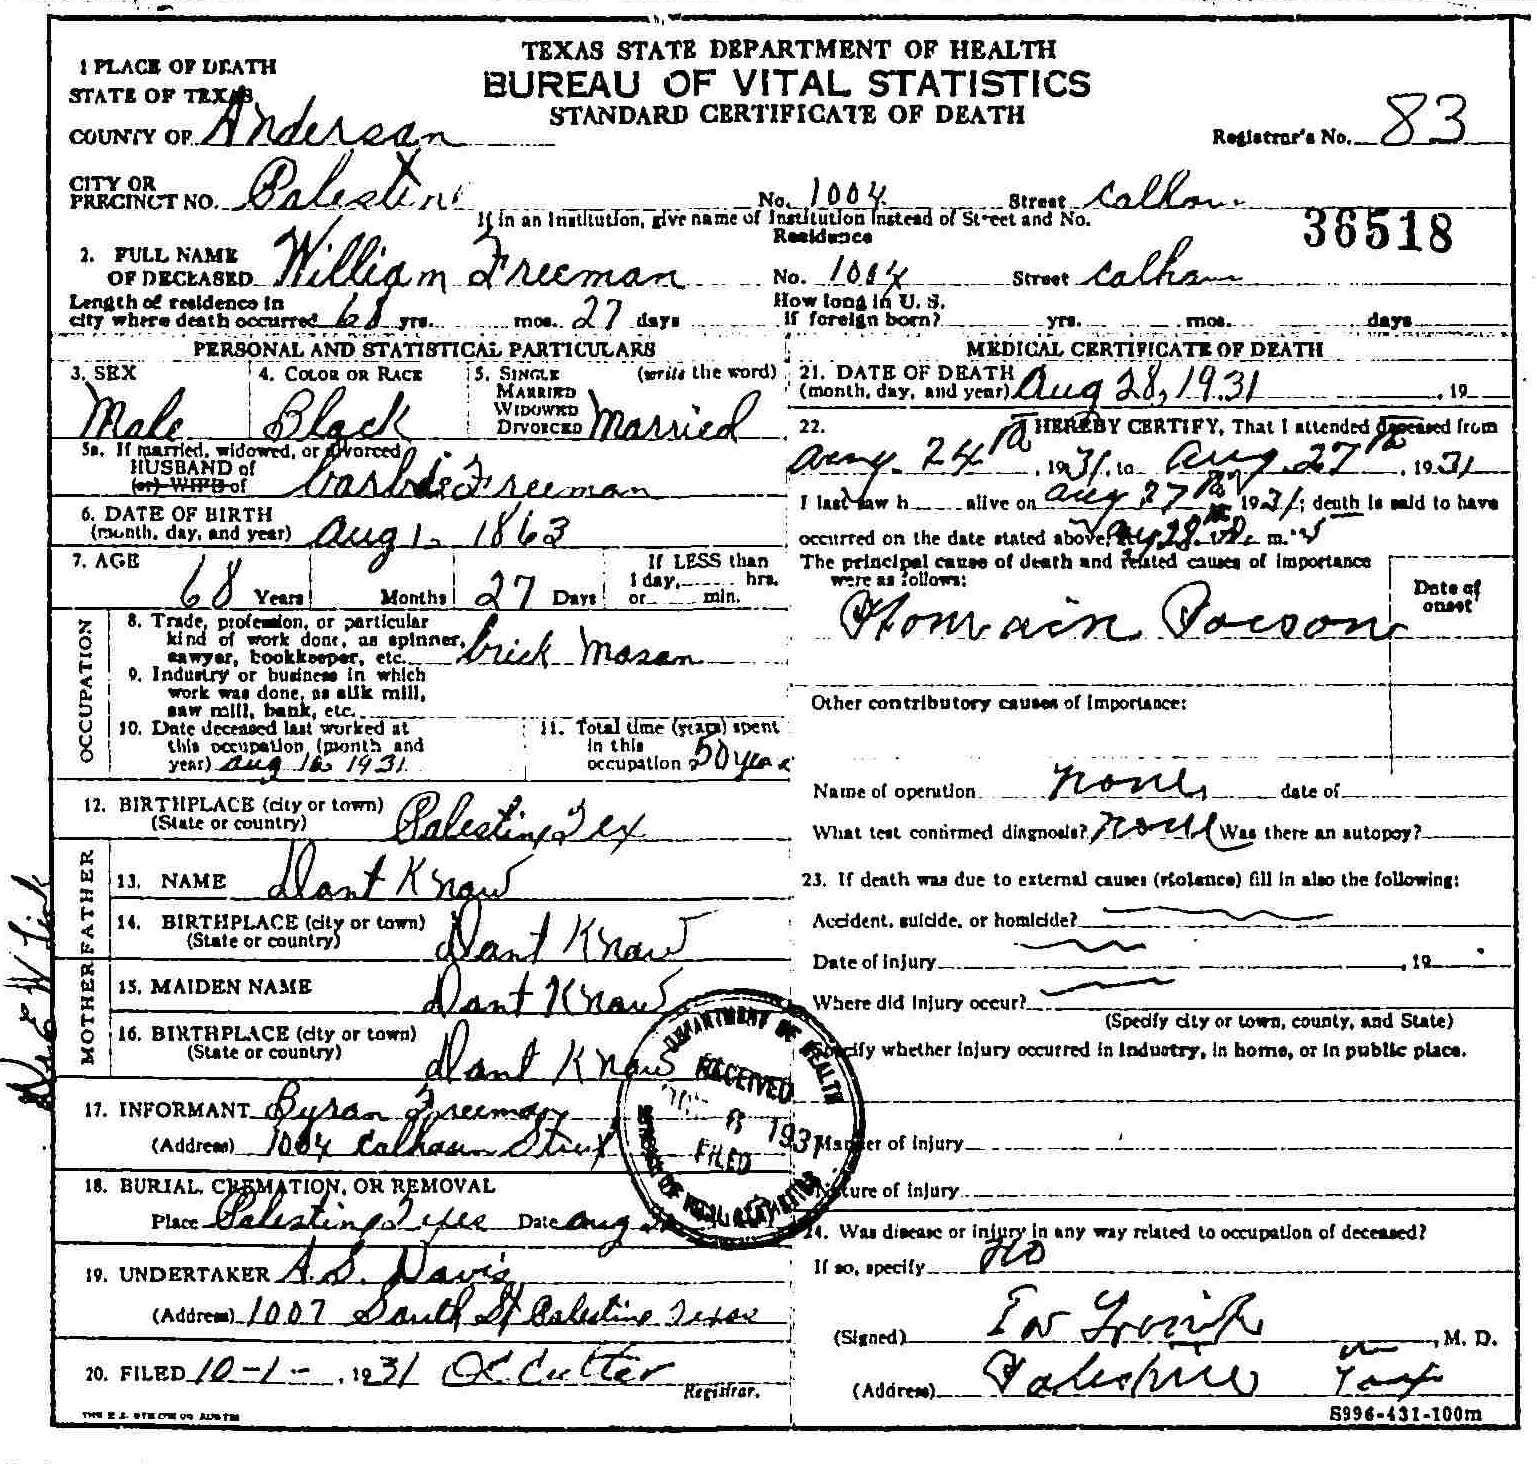 TEXAS STATE DEPARTMENT OF HEALTH
BUREAU OF VITAL STATISTICS
STANDARD CERTIFICATE OF DEATH
1 PLACE OF DEATH
STATE OF TEXAS
COUNTY OF Anderson
Registrar's No. 83
CITY OR
PRECINCT NO. Palestine No. 1004 Street Calhoun
If in an Institution, give name of Institution instead of Street and No.
36518
Residence
2. FULL NAME
OF DECEASED William Freeman No. 1004 Street Calhoun
Length of residence in
city where death occurred 68 yrs. mos. 27 days
How long in U. S.
if foreign born? yrs. mos. days
PERSONAL AND STATISTICAL PARTICULARS
3. SEX
Male
4. COLOR OR RACE
Black
5. SINGLE (write the word)
MARRIED
WIDOWED
DIVORCED Married
5a. If married, widowed, or divorced
HUSBAND of
(or) WIFE of Freeman
6. DATE OF BIRTH
(month, day, and year) Aug 1. 1863
7. AGE
68 Years Months 27 Days
If LESS than
1 day, hrs.
or min.
OCCUPATION
8. Trade, profession, or particular
kind of work done, as spinner,
sawyer, bookkeeper, etc. brick Mason
9. Industry or business in which
work was done, as silk mill,
saw mill, bank, etc.
10. Date deceased last worked at
this occupation (month and
year) Aug 1931
11. Total time (years) spent
in this
occupation 50 years
12. BIRTHPLACE (city or town)
(State or country) Palestine Tex
FATHER
13. NAME Dont Know
14. BIRTHPLACE (city or town)
(State or country) Dont Know
MOTHER
15. MAIDEN NAME Dont Know
16. BIRTHPLACE (city or town)
(State or country) Dont Know
17. INFORMANT Byran Freeman
(Address) 1004 Calhoun Street
18. BURIAL, CREMATION, OR REMOVAL
Place Palestine Date Aug
19. UNDERTAKER A. S. Davis
(Address) 1007 South St Palestine Texas
20. FILED 10-1-, 1931 Cutter
Registrar.
MEDICAL CERTIFICATE OF DEATH
21. DATE OF DEATH
(month, day, and year) Aug 28, 1931, 19
22. I HEREBY CERTIFY, That I attended deceased from
Aug. 24th, 1931, to Aug. 27th, 1931
I last saw h alive on Aug 27th, 1931; death is said to have
occurred on the date stated above, Aug 28 m.
The principal cause of death and related causes of importance
were as follows:
Date of
onset
Ptomain Poison
Other contributory causes of importance:
Name of operation none date of
What test confirmed diagnosis? none Was there an autopsy?
23. If death was due to external causes (violence) fill in also the following:
Accident, suicide, or homicide?
Date of injury , 19
Where did injury occur?
(Specify city or town, county, and State)
Specify whether injury occurred in industry, in home, or in public place.
Manner of injury
Nature of injury
24. Was disease or injury in any way related to occupation of deceased?
If so, specify no
(Signed) , M. D.
(Address) Palestine
S996-431-100m
DEPARTMENT OF HEALTH
RECEIVED
8 1931
FILED
BUREAU OF VITAL STATISTICS